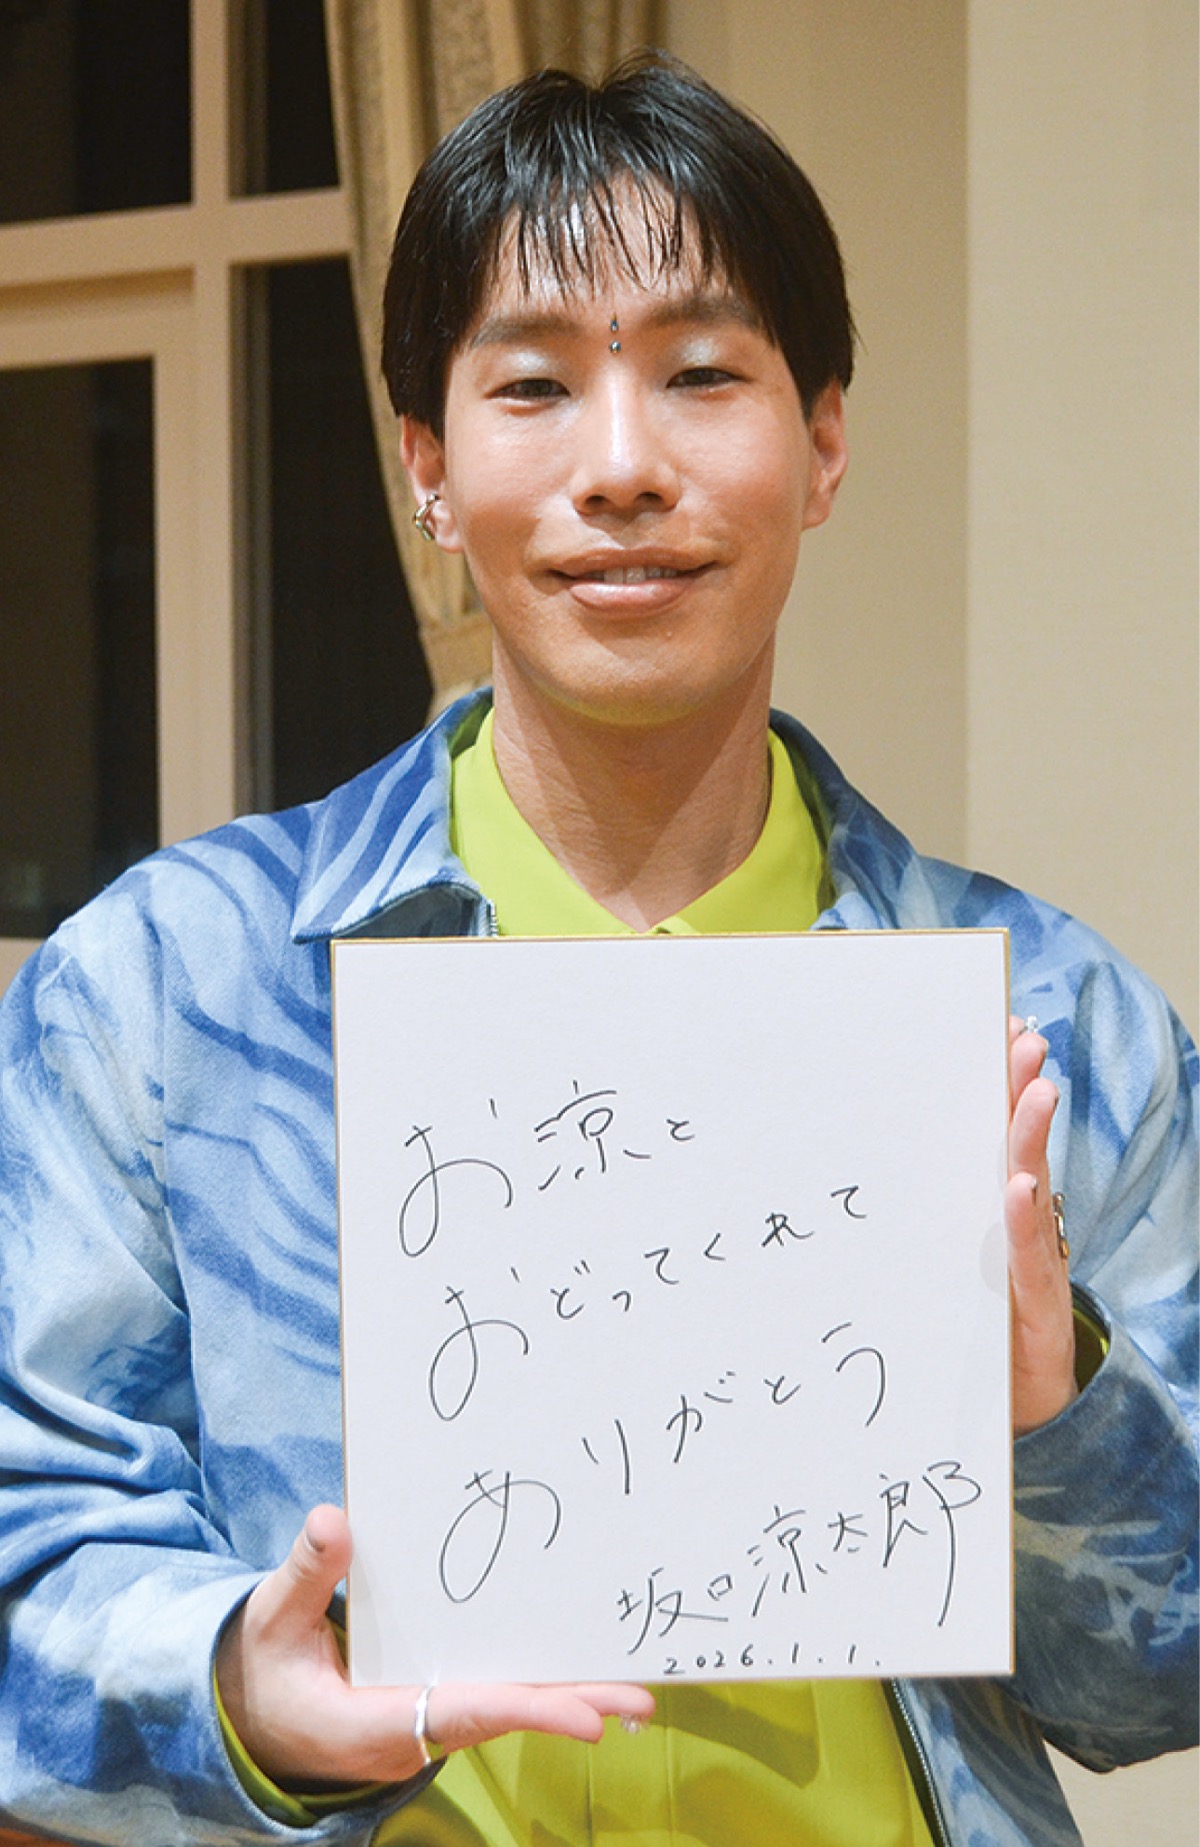 お涼と
おどってくれて
ありがとう
坂口涼太郎
2026.1.1.